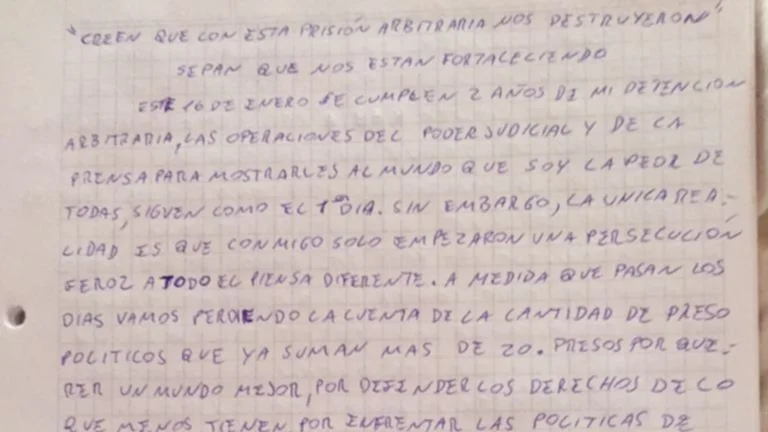 "CREEN QUE CON ESTA PRISIÓN ARBITRARIA NOS DESTRUYERON"
SEPAN QUE NOS ESTAN FORTALECIENDO
ESTE 16 DE ENERO SE CUMPLEN 2 AÑOS DE MI DETENCION
ARBITRARIA, LAS OPERACIONES DEL PODER JUDICIAL Y DE LA
PRENSA PARA MOSTRARLES AL MUNDO QUE SOY LA PEOR DE
TODAS, SIGUEN COMO EL 1º DIA. SIN EMBARGO, LA UNICA REA-
LIDAD ES QUE CONMIGO SOLO EMPEZARON UNA PERSECUCIÓN
FEROZ A TODO EL PIENSA DIFERENTE. A MEDIDA QUE PASAN LOS
DIAS VAMOS PERDIENDO LA CUENTA DE LA CANTIDAD DE PRESO
POLITICOS QUE YA SUMAN MAS DE 20. PRESOS POR QUE-
RER UN MUNDO MEJOR, POR DEFENDER LOS DERECHOS DE LO
QUE MENOS TIENEN POR ENFRENTAR LAS POLITICAS DE